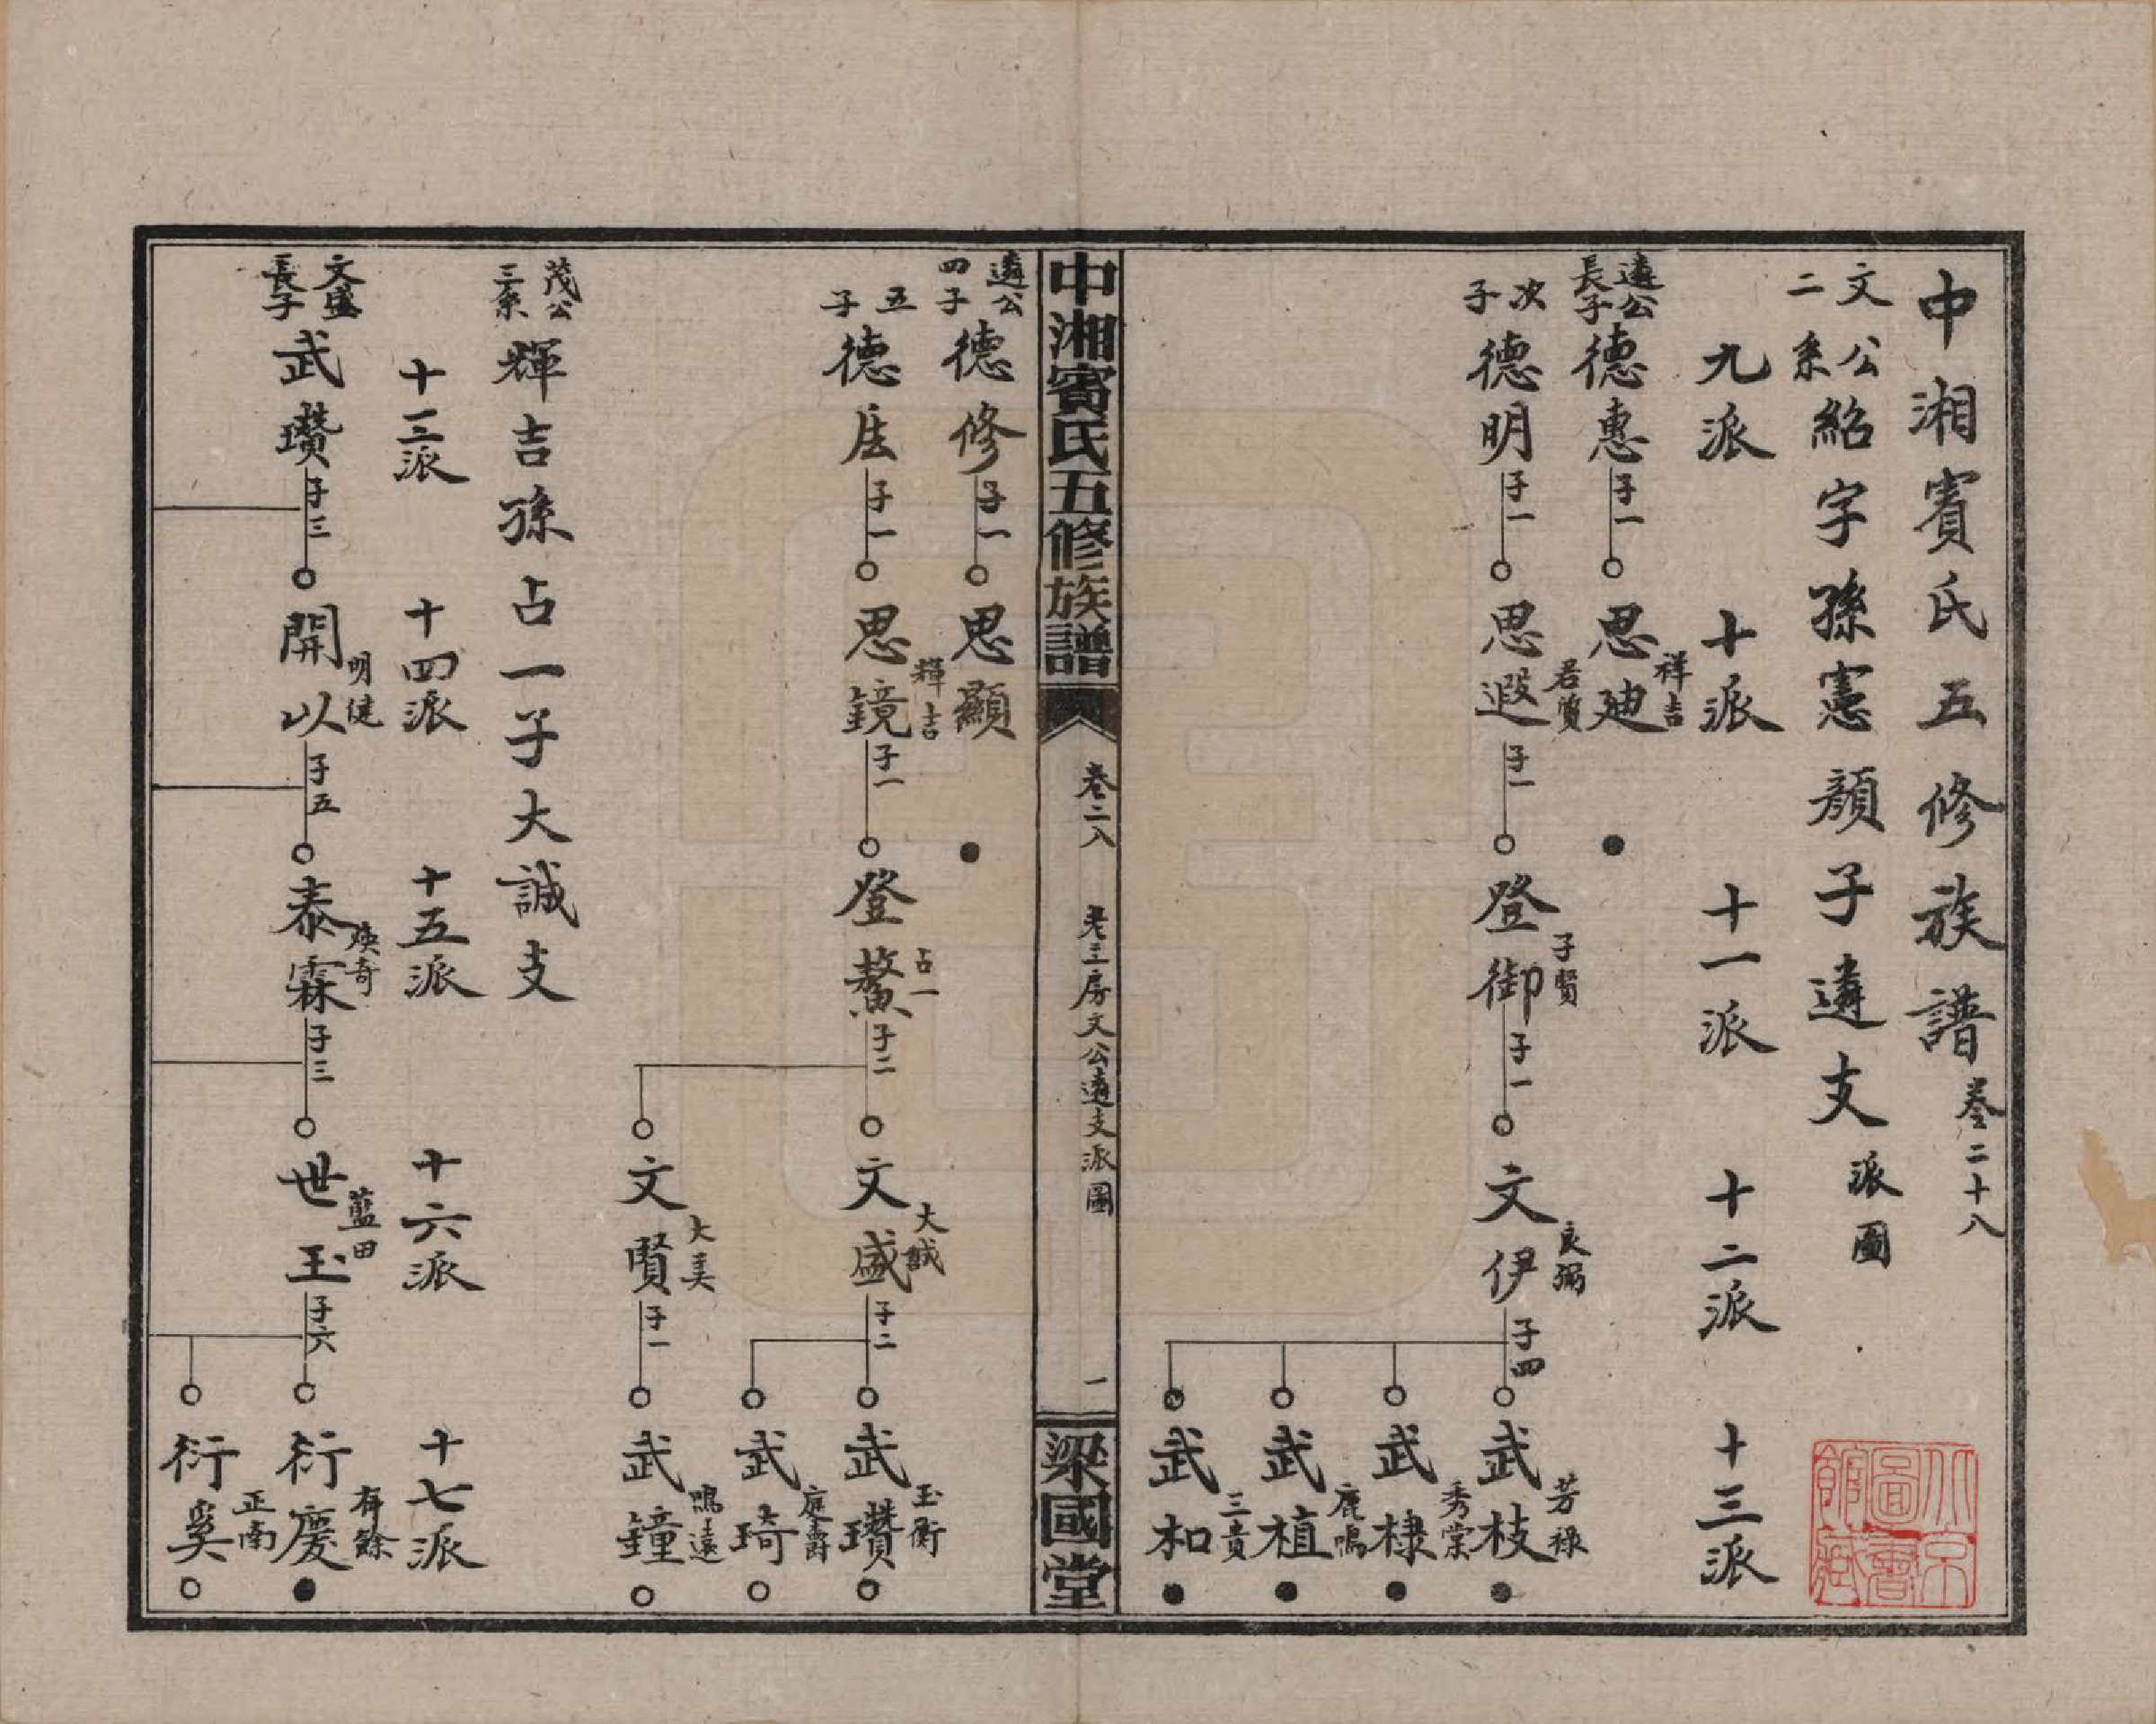 中湘賓氏五修族譜 卷二十八
文公二系 紹字孫憲顏子遴支派圖
九派 十派 十一派 十二派 十三派
遴公長子 德惠 子一 思迪 祥吉
次子 德明 子一 思遐 君質 子一 登御 子賢 子一 文伊 良弼 子四 武枝 芳祿
武棣 秀棠
武植 鹿鳴
武和 三貴
中湘賓氏五修族譜 卷二八 老三房文公遴支派圖 一 梁國堂
遴公四子 德修 子一 思顯
五子 德 子一 思鏡 輝吉 子一 登鰲 占一 子二 文盛 大誠 子二 武瓚 玉衡
武琦 庭爵
文賢 大美 子一 武鐘 鳴遠
茂公三系 輝吉孫占一子大誠支
十三派 十四派 十五派 十六派 十七派
文盛長子 武瓚 子三 開以 明健 子五 泰霖 煥奇 子三 世玉 藍田 子六 衍慶 有餘
衍奚 正南
北京圖書館藏